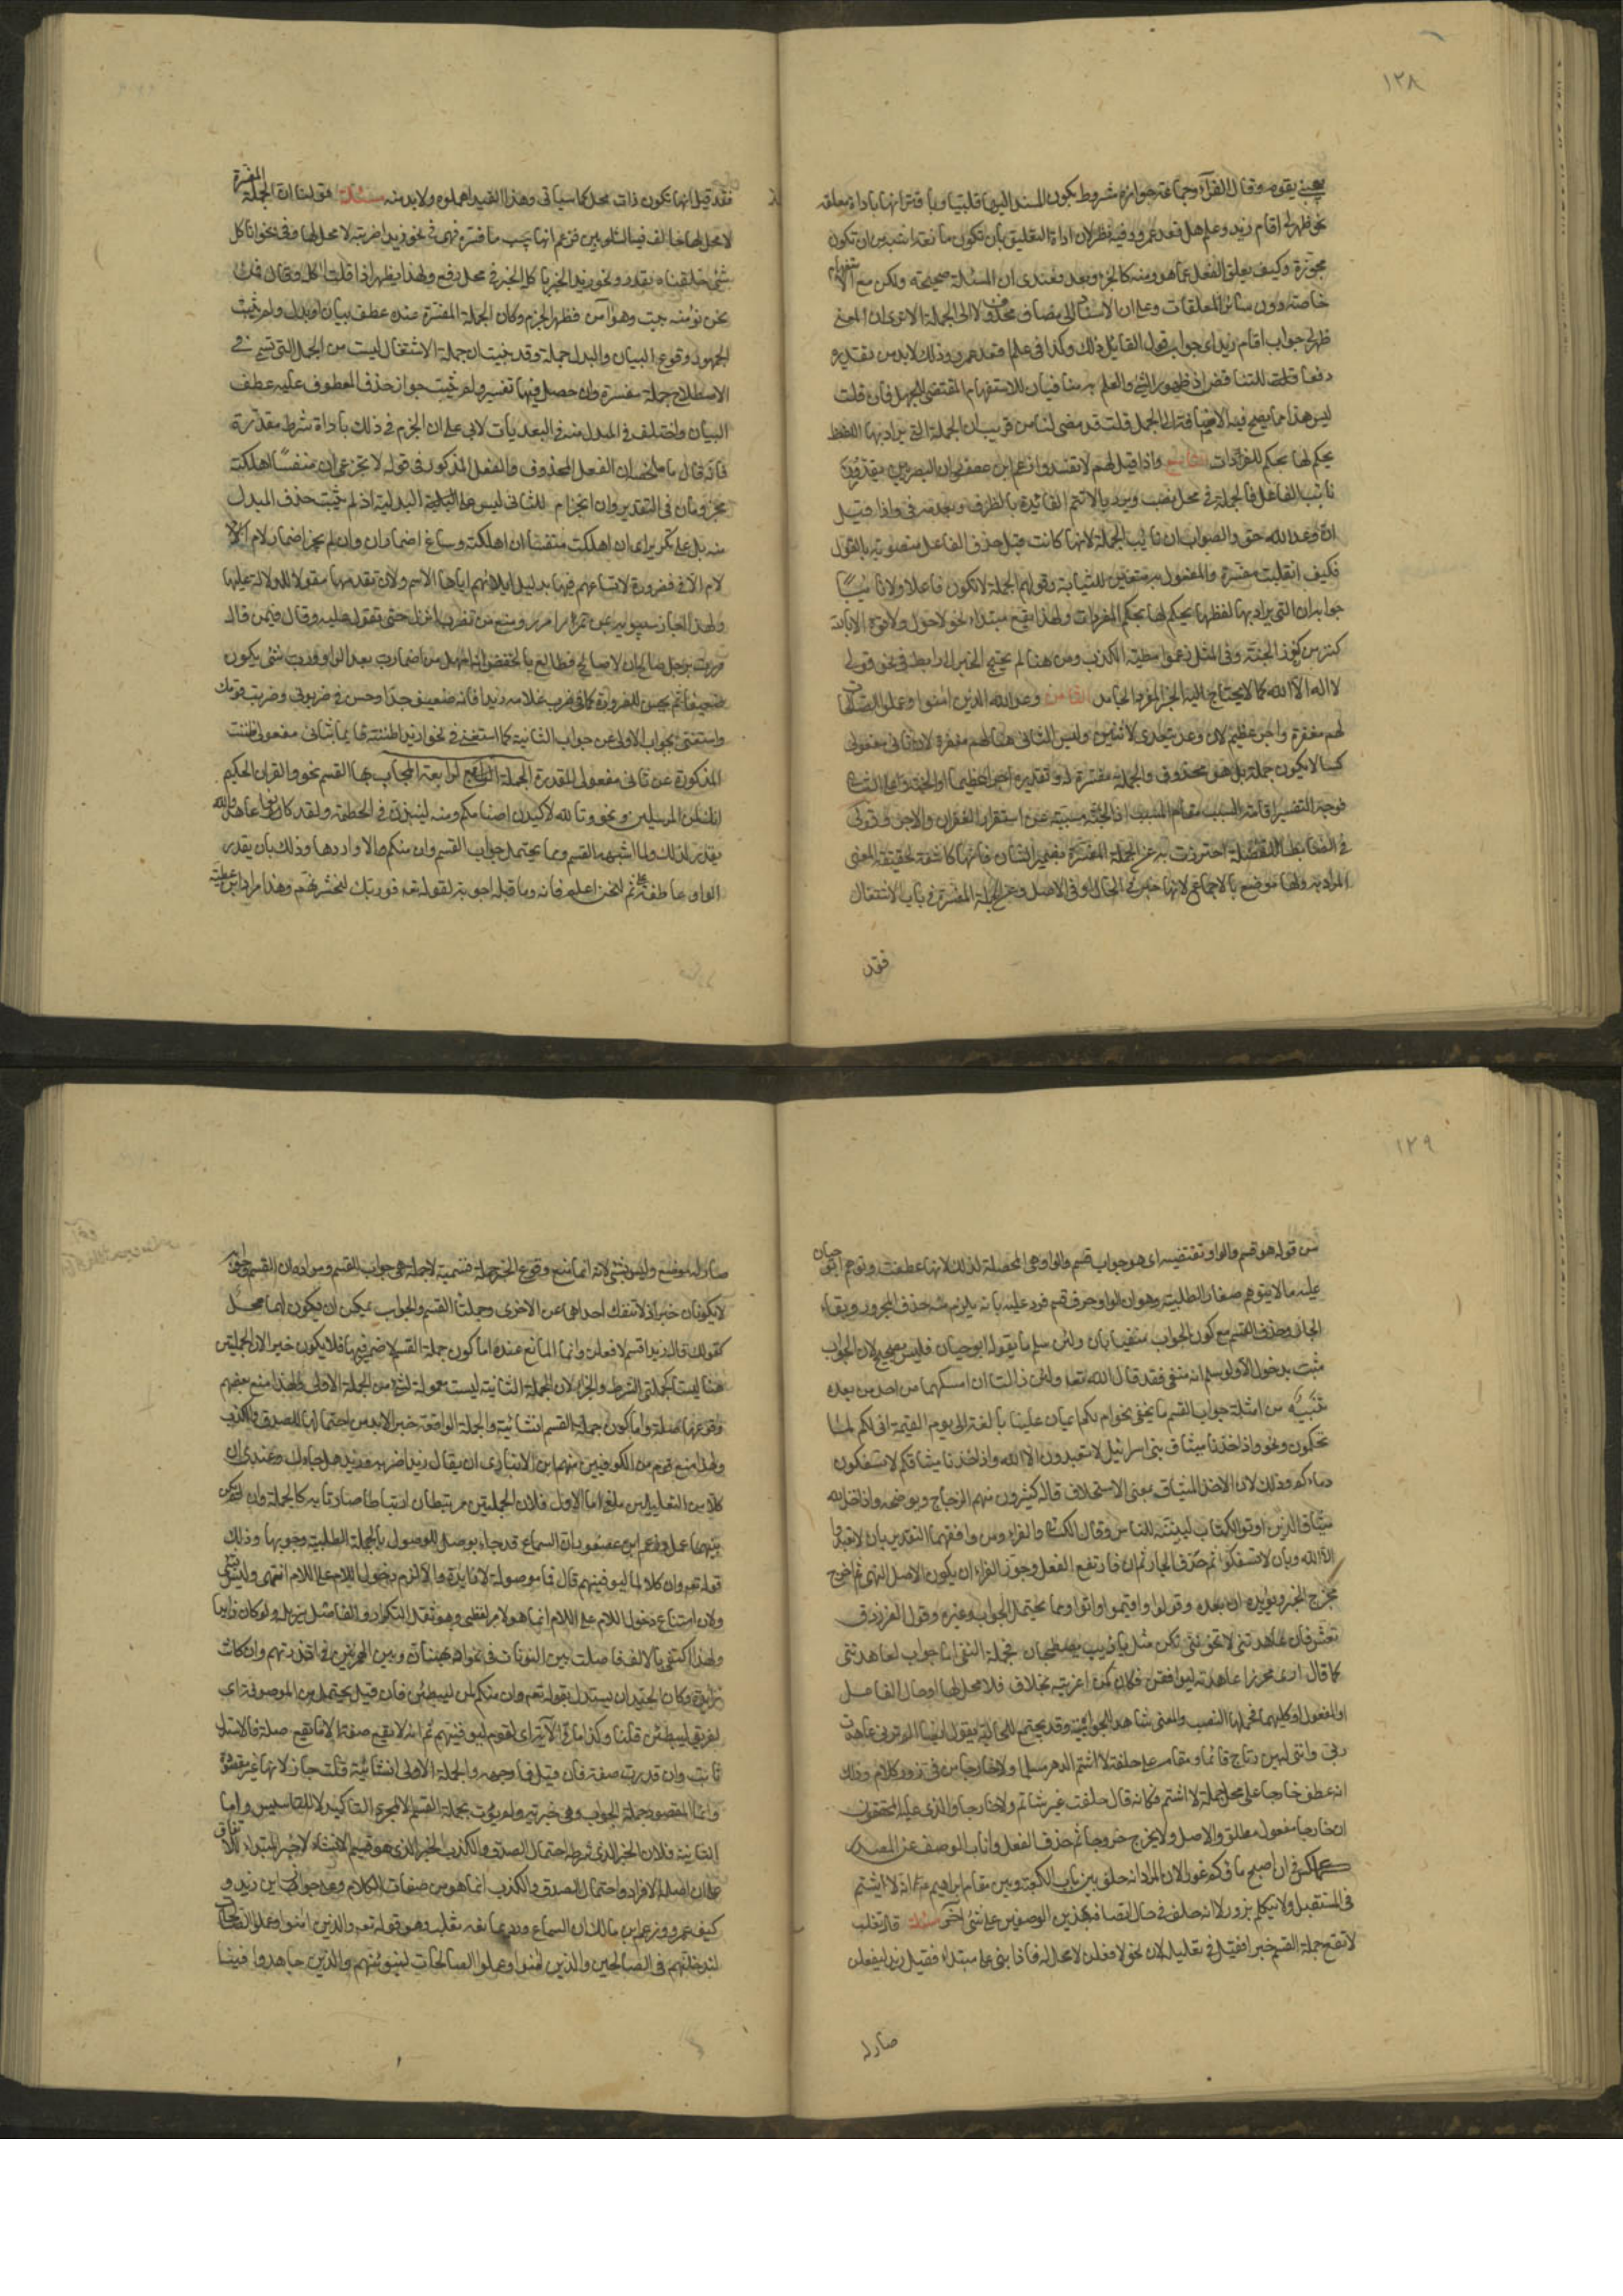 ١٢٨
يعجبني يقوم وقال الفرآء وجماعة جوازه مشروط بكون المسند اليها قلبيا وباقترانها باداة معلقة
نحو ظهر لى اقام زيد وعلم هل قعد عمرو وفيه نظر لان اداة التعليق بان تكون مانعة اشبه من ان تكون
مجوّزة وكيف يعلق الفعل عما هو منه كالجزء وبعد فعندى ان المسئلة صحيحة ولكن مع الاستفهام
خاصة دون سائر المعلقات وعلى ان الاسناد الى مضاف محذوف لا الى الجملة الا ترى ان المعنى
ظهر لى جواب اقام زيد اى جواب قول القائل ذلك وكذا فى علم اقعد عمرو وذلك لابد من تقديره
دفعا للتناقض اذ ظهور الشئ والعلم به منافيان للاستفهام المقتضى للجهل به فان قلت
ليس هذا مما يصح فيه الاضافة الى الجمل قلت قد مضى لنا من قريب ان الجملة التى يراد بها اللفظ
يحكم لها بحكم المفردات واذا قيل لهم لا تفسدوا زعم ابن عصفور ان البصريين يقدّرون
نائب الفاعل فالجملة فى محل نصب ويرد بالا تتم الفائدة بالظرف وبعدمه فى واذا قيل
انّ وعد الله حق والصواب ان نائب الجملة لانها كانت قبل حذف الفاعل منصوبة بالقول
فكيف انقلبت مفسّرة والمفعول به متعيّن للنيابة وقولهم الجملة لا تكون فاعلا ولا نائبًا
جوابه ان التى يراد بها لفظها يحكم لها بحكم المفردات ولهذا تقع مبتداء نحو لا حول ولا قوة الا بالله
كنز من كنوز الجنّة وفى المثل زعموا مطية الكذب ومن هنا لم يحتج الخبر الى رابط فى نحو قولى
لا اله الا الله كما لا يحتاج اليه الخبر المفرد الجامد الثامن وعد الله الذين امنوا وعملوا الصالحات
لهم مغفرة واجر عظيم لان وعد يتعدى لاثنين وليس الثانى هنا لهم مغفرة لان ثانى مفعولى
كسا لا يكون جملة بل هو محذوف والجملة مفسّرة له وتقديره خيرا عظيما او الجنة وعلى الثانى
فوجه التفسير اقامة السبب مقام المسبب اذ الجنّة مسببة عن استقرار الغفران والاجر وقولى
فى الضابط الفضلة احترزت به عن الجملة المفسّرة بضمير الشأن فانها كاشفة لحقيقة المعنى
المراد به ولها موضع بالاجماع لانها خبر فى الحال او فى الاصل وعن الجملة المفسّرة فى باب الاشتغال
فقد
فقد قيل انها تكون ذات محل كما سياتى وهذا القيد اهملوه ولابد منه مسئلة قولنا ان الجملة المفسرة
لا محل لها خالف فيه الشلوبين فزعم انها بحسب ما تفسّره فهى فى نحو زيدا ضربته لا محل لها وفى نحو انا كل
شئ خلقناه بقدر ونحو زيد الخبز ياكله الخبز فى محل رفع ولهذا يظهر اذا قلت اكله وقال فمن
نحن نؤمنه يبت وهو آمن فظهر الجزم وكان الجملة المفسّرة عنده عطف بيان او بدل ولم يثبت
الجمهور وقوع البيان والبدل جملة وقد بينت ان جملة الاشتغال ليست من الجمل التى تسمى فى
الاصطلاح جملة مفسرة وان حصل فيها تفسير ولم يثبت جواز حذف المعطوف عليه عطف
البيان واختلف فى المبدل منه فى البغداديات لابى على ان الجزم فى ذلك باداة شرط مقدّرة
فانه قال ما ملخصه ان الفعل المحذوف والفعل المذكور فى قوله لا تجزعى ان منفسًا اهلكته
مجزومان فى التقدير وان انجزام الثانى ليس على البدلية اذ لم يثبت حذف المبدل
منه بل على تكرير ان اى ان اهلكت منفسًا ان اهلكته وساغ اضمار ان وان لم يجز اضمار لام الامر
الا فى ضرورة لاتساعهم فيها بدليل ايلائهم اياها الاسم ولان تقدمها مقوّ للدلالة عليها
ولهذا اجاز سيبويه بمن تمرر امرر ومنع من تضرب انزل حتى تقول عليه وقال فيمن قال
مررت برجل صالح ان لا صالح فطالح بالخفض انه اسهل من اضمار رب بعد الواو ورب شئ يكون
ضعيفا ثم يحسن للضرورة كما فى ضرب غلامه زيدا فانه ضعيف جدا وحسن فى ضربونى وضربت قومك
واستغنى بجواب الاولى عن جواب الثانية كما استغنى فى نحو ازيدا ظننته قائما بثانى مفعولى ظننت
المذكورة عن ثانى مفعولى المقدرة الجملة الرابعة المجاب بها القسم نحو والقران الحكيم
انك لمن المرسلين ونحو وتالله لاكيدن اصنامكم ومنه لينبذن فى الحطمة ولقد كانوا عاهدوا الله
يقدر لذلك ولما اشبهه القسم ومما يحتمل جواب القسم وان منكم الا واردها وذلك بان يقدر
الواو عاطفة على ثم لنحن اعلم فانه وما قبله اجوبة لقوله تعالى فوربك لنحشرنهم وهذا مراد ابن عطية
١٢٩
من قوله هو قسم والواو تقتضيه اى هو جواب قسم والواو هى المحصلة لذلك لانها عطفت وتوهم ابو حيان
عليه ما لا يتوهم صغار الطلبة وهو ان الواو حرف قسم فرد عليه بانه يلزم منه حذف المجرور وبقاء
الجار وحذف القسم مع كون الجواب منفيا بان ولئن سلم ما يقوله ابو حيان فليس بصحيح لان الجواب
مثبت بدخول الا ولو سلم انه منفى فقد قال الله تعالى ولئن زالتا ان امسكهما من احد من بعده
تنبيه من امثلة جواب القسم ما يخفى نحو ام لكم ايمان علينا بالغة الى يوم القيمة ان لكم لما
تحكمون ونحو واذ اخذنا ميثاق بنى اسرائيل لا تعبدون الا الله واذ اخذنا ميثاقكم لا تسفكون
دماءكم وذلك لان اخذ الميثاق بمعنى الاستحلاف قاله كثيرون منهم الزجاج ويوضحه واذ اخذ الله
ميثاق الذين اوتوا الكتاب لتبيننه للناس وقال الكسائى والفراء ومن وافقهما التقدير بان لا تعبدوا
الا الله وبان لا تسفكوا ثم حذف الجار ثم ان فارتفع الفعل وجوز الفراء ان يكون الاصل النهى ثم اخرج
مخرج الخبر ويؤيده ان بعده وقولوا واقيموا واتوا ومما يحتمل الجواب وغيره وقول الفرزدق
تعش فان عاهدتنى لا تخوننى نكن مثل من يا ذئب يصطحبان فجملة النفى اما جواب لعاهدتنى
كما قال ارى محرزا عاهدته ليوافقن فكان كمن اغريته بخلاف فلا محل لها او حال من الفاعل
او المفعول او كليهما فمحلها النصب والمعنى شاهد للجوابية وقد يحتج للحالية بقوله ايضا الم ترنى عاهدت
ربى واننى لبين رتاج قائما ومقام على حلفة لا اشتم الدهر مسلما ولا خارجا من فى زور كلام وذلك
انه عطف خارجا على محل جملة لا اشتم فكانه قال حلفت غير شاتم ولا خارجا والذى عليه المحققون
ان خارجا مفعول مطلق والاصل ولا يخرج خروجا ثم حذف الفعل واناب الوصف عن المصدر
كما عكس فى ان اصبح ماؤكم غورا لان المراد انه حلف بين باب الكعبة وبين مقام ابراهيم ع انه لا يشتم
فى المستقبل ولا يتكلم بزور لا انه حلف فى حال اتصافه بهذين الوصفين على شئ آخر مسئلة قال ثعلب
لا تقع جملة القسم خبرا فقيل فى تعليله لان نحو لافعلن لا محل له فاذا بنى على مبتداء فقيل زيد ليفعلن
صار له
صار له موضع وليس بشئ لانه انما منع وقوع الخبر جملة قسمية لا جملة هى جواب القسم ومراده ان القسم وجوابه
لا يكونان خبرا اذ لا تنفك احداهما عن الاخرى وجملتا القسم والجواب يمكن ان يكون لهما محل
كقولك قال زيد اقسم لافعلن وانما المانع عنده اما كون جملة القسم لا ضمير فيها فلا يكون خبرا لان الجملتين
هنا ليستا كجملتى الشرط والجزاء لان الجملة الثانية ليست معمولة لشئ من الجملة الاولى ولهذا منع بعضهم
وقوعها صلة واما كون جملة القسم انشائية والجملة الواقعة خبرا لابد من احتمالها للصدق والكذب
ولهذا منع قوم من الكوفيين منهم ابن الانبارى ان يقال زيد اضربه وزيد هل جاءك وعندى ان
كلا من التعليلين ملغى اما الاول فلان الجملتين مرتبطتان ارتباطا صارتا به كالجملة وان لم يكن
بينهما عمل وزعم ابن عصفور ان السماع قد جاء بوصل الموصول بالجملة القسمية وجوابها وذلك
قوله تعالى وان كلا لما ليوفينهم قال فما موصولة لا زايدة والا لزم دخول اللام على اللام انتهى وليس بشئ
ولان امتناع دخول اللام على اللام انما هو لامر لفظى وهو ثقل التكرار والفاصل يزيله ولو كان زايدا
ولهذا اكتفى بالالف فاصلة بين النونات فى نحو اذهبنان وبين الهمزتين فى ءانذرتهم وان كانت
زايدة وكان الجيد ان يستدل بقوله تعالى وان منكم لمن ليبطئن فان قيل يحتمل من الموصوفة اى
لفريق ليبطئن قلنا وكذا ما فى الآية اى لقوم ليوفينهم ثم انه لا يقع صفة الا ما يقع صلة فالاستدلال
ثابت وان قدرت صفة فان قيل فما وجهه والجملة الاولى انشائية قلت جاز لانها غير مقصودة
وانما المقصود جملة الجواب وهى خبرية ولم يؤت بجملة القسم الا لمجرد التاكيد لا للتاسيس واما
الثانى فلان الخبر الذى شرطه احتمال الصدق والكذب الخبر الذى هو قسيم الانشاء لا خبر المبتداء للاتفاق
على ان اصله الافراد واحتمال الصدق والكذب انما هو من صفات الكلام وعلى جواز اين زيد و
كيف عمرو وزعم ابن مالك ان السماع ورد بما منعه ثعلب وهو قوله تعالى والذين امنوا وعملوا الصالحات
لندخلنهم فى الصالحين والذين امنوا وعملوا الصالحات لنبوئنهم والذين جاهدوا فينا